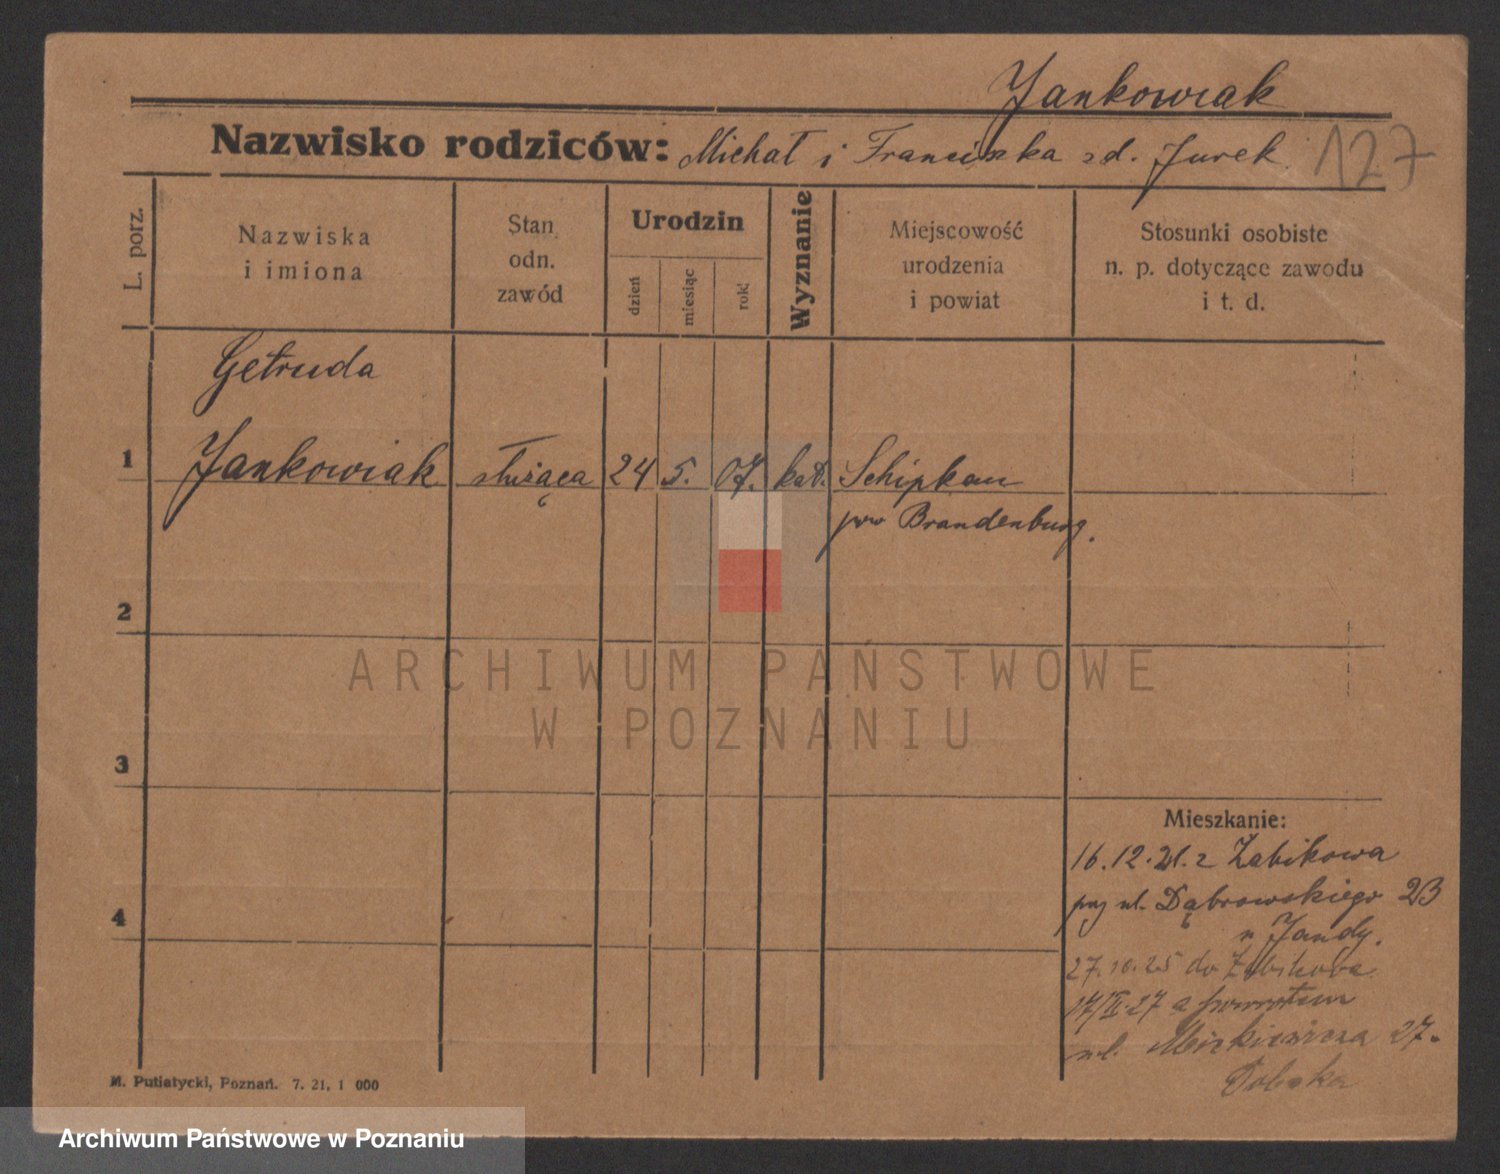 Jankowiak
Nazwisko rodziców: Michał i Franciszka zd. Jurek 127
L. porz.
Nazwiska
i imiona
Stan
odn.
zawód
Urodzin
dzień
miesiąc
rok
Wyznanie
Miejscowość
urodzenia
i powiat
Stosunki osobiste
n. p. dotyczące zawodu
i t. d.
Getruda
1 Jankowiak służąca 24 5. 07. kat. Schipkau
pow Brandenburg.
2
ARCHIWUM PAŃSTWOWE
W POZNANIU
3
Mieszkanie:
16.12.21. z Żabikowa
przy ul. Dąbrowskiego 23
4
u Jandy.
27.10.25 do Żabikowa
17/II.27 z powrotem
ul. Mickiewicza 27.
M. Putiatycki, Poznań. 7. 21. 1 000
Archiwum Państwowe w Poznaniu